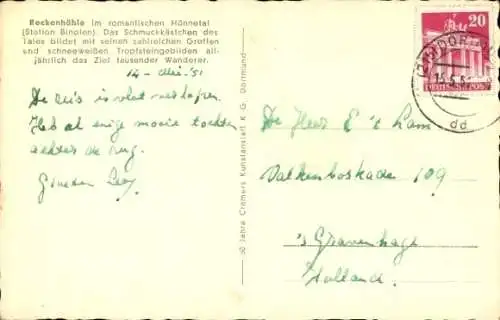 Reckenhöhle im romantischen Hönnetal
(Station Binolen). Das Schmuckkästchen des
Tales bildet mit seinen zahlreichen Grotten
und schneeweißen Tropfsteingebilden all-
jährlich das Ziel tausender Wanderer.
14 - Mei '51
De reis is vlot verlopen.
Heb al enige mooie tochten
achter de rug.
Groeten
50 Jahre Cramers Kunstanstalt K. G. Dortmund
20
DEUTSCHE POST
dd
De Heer E 't Lam
Valkenboskade 109
's Gravenhage
Holland.